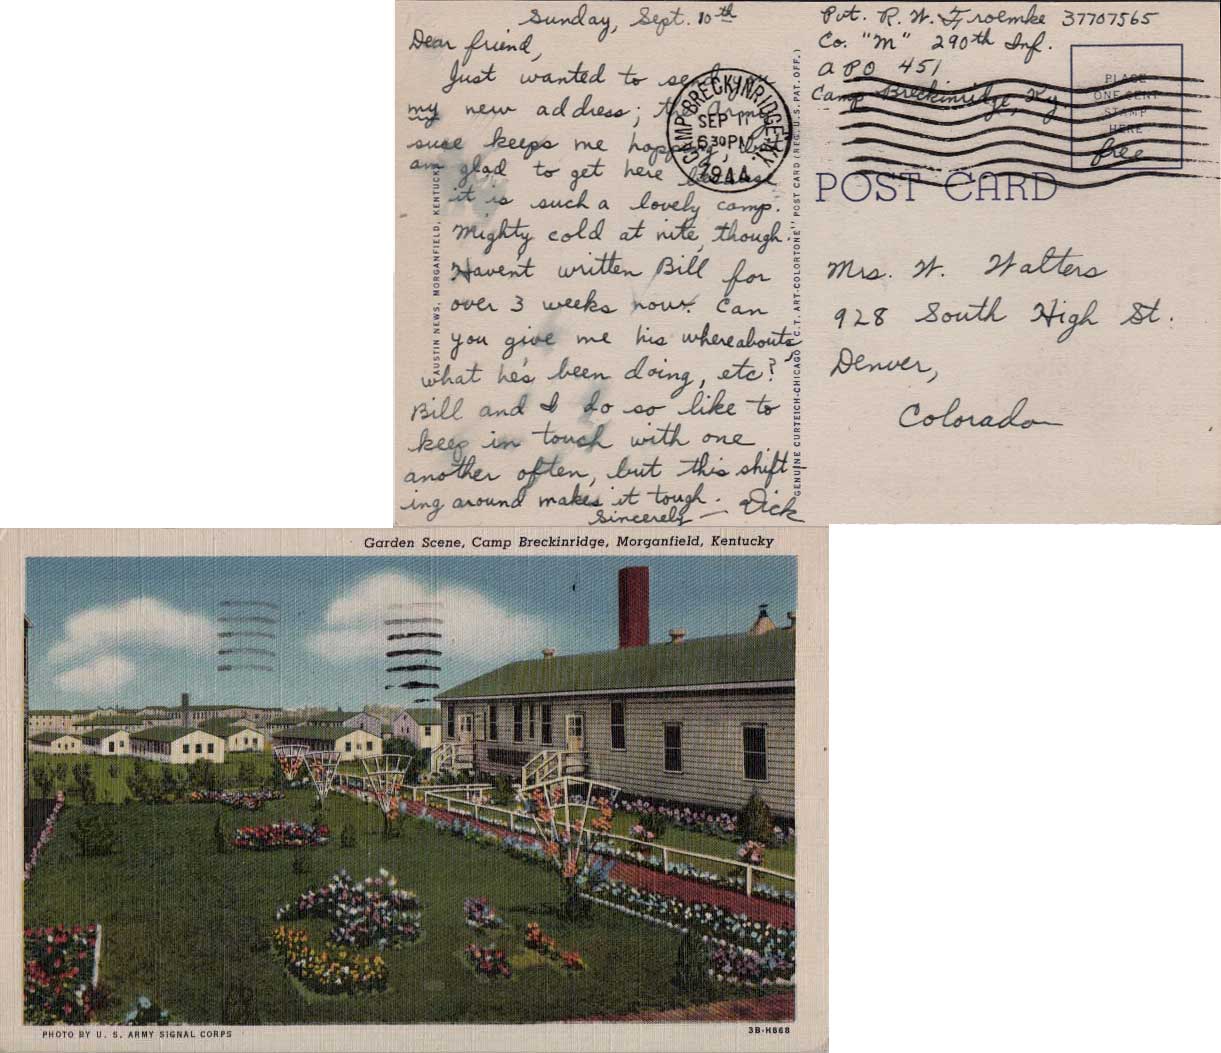 Sunday, Sept. 10th
Dear friend,
Just wanted to send you
my new address; the Army
sure keeps me hopping, but
am glad to get here because
it is such a lovely camp.
Mighty cold at nite, though.
Haven't written Bill for
over 3 weeks now. Can
you give me his whereabouts,
what he's been doing, etc?
Bill and I do so like to
keep in touch with one
another often, but this shift-
ing around makes it tough.
Sincerely — Dick
AUSTIN NEWS, MORGANFIELD, KENTUCKY
GENUINE CURTEICH-CHICAGO "C.T. ART-COLORTONE" POST CARD (REG. U.S. PAT. OFF.)
CAMP BRECKINRIDGE, KY.
SEP 11
6 30 PM
1944
Pvt. R. W. Froemke 37707565
Co. "M" 290th Inf.
APO 451
Camp Breckinridge, Ky.
PLACE
ONE CENT
STAMP
HERE
free
POST CARD
Mrs. W. Walters
928 South High St.
Denver,
Colorado
Garden Scene, Camp Breckinridge, Morganfield, Kentucky
PHOTO BY U. S. ARMY SIGNAL CORPS
3B-H668